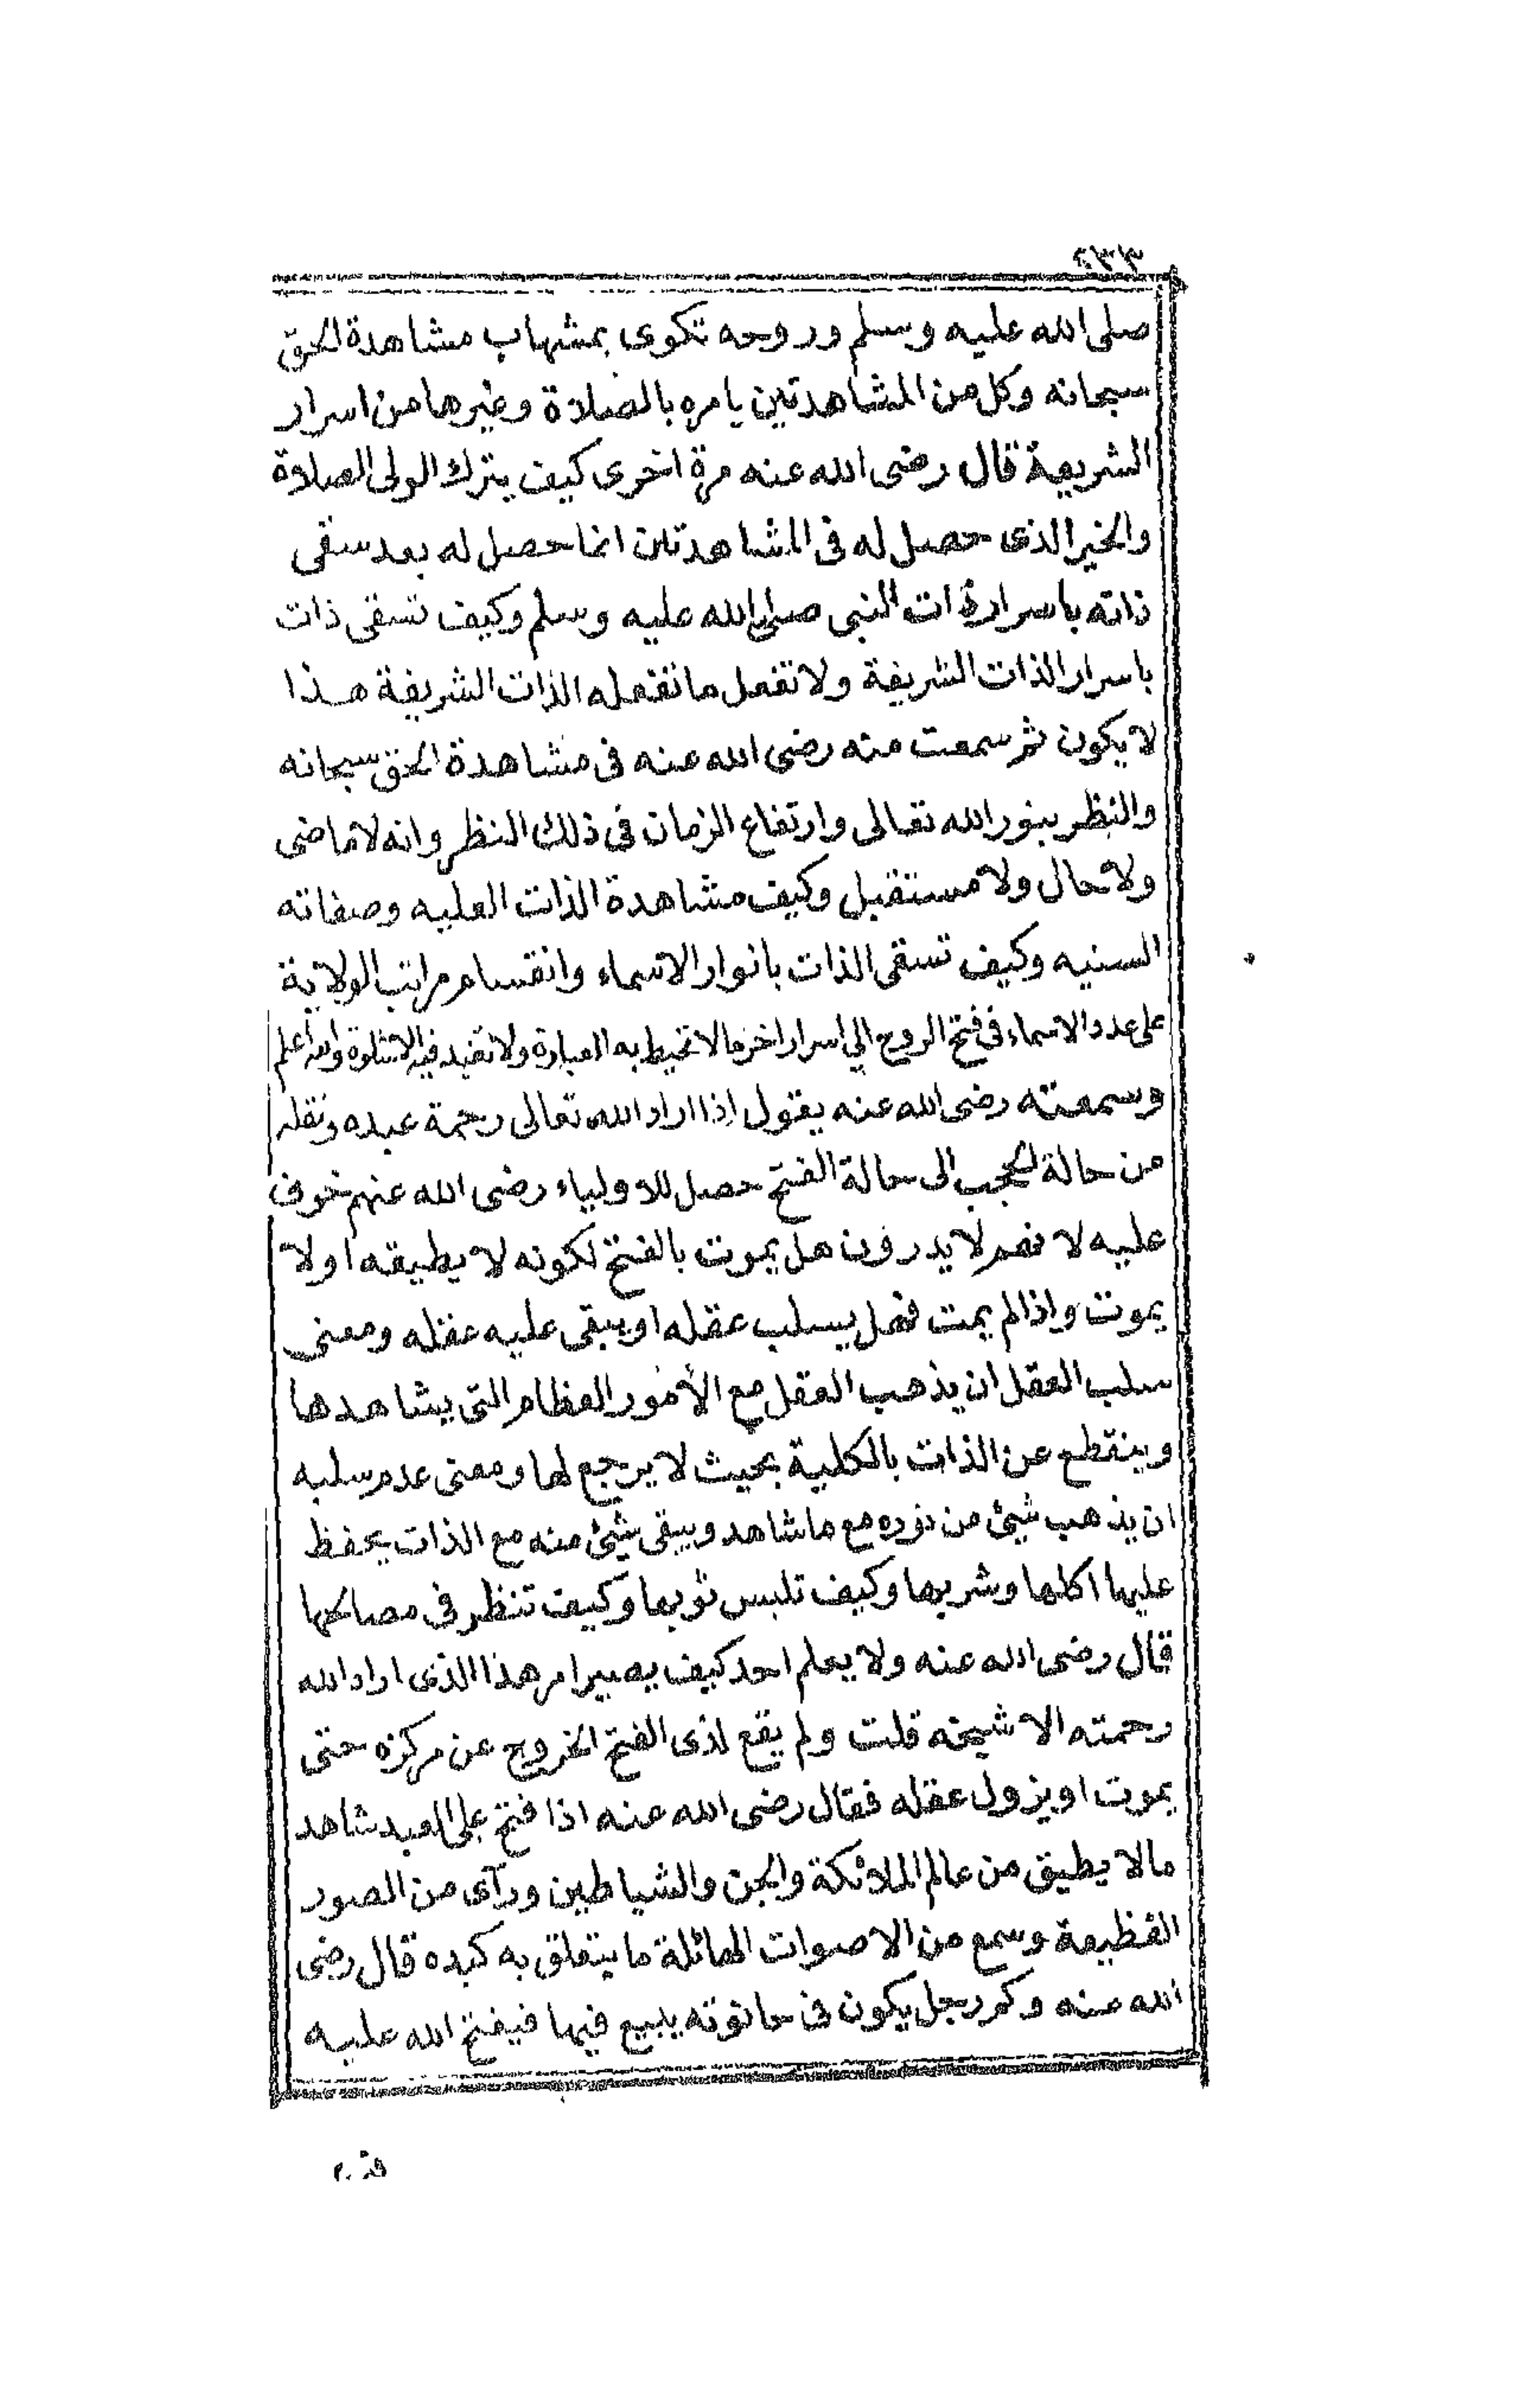 ٢٣٣
صلى الله عليه وسلم وروحه تكوى بمشهاب مشاهدة الحق
سبحانه وكل من المشاهدتين يامره بالصلاة وغيرها من اسرار
الشريعة قال رضى الله عنه مرة اخرى كيف يترك الولى الصلاة
والخير الذى حصل له فى المشاهدتين انما حصل له بعد سقى
ذاته باسرار ذات النبى صلى الله عليه وسلم وكيف تسقى ذات
باسرار الذات الشريفة ولا تفعل ما تفعله الذات الشريفة هذا
لا يكون ثم سمعت منه رضى الله عنه فى مشاهدة الحق سبحانه
والنظر بنور الله تعالى وارتفاع الزمان فى ذلك النظر وانه لا ماضى
ولا حال ولا مستقبل وكيف مشاهدة الذات العليه وصفاته
السنيه وكيف تسقى الذات بانوار الاسماء وانقسام مراتب الولاية
على عدد الاسماء فى فتح الروح الى اسرار اخر مالا تحيط به العبارة ولا تفيد فيه الاشارة والله أعلم
وسمعته رضى الله عنه يقول إذا اراد الله تعالى رحمة عبده ونقله
من حالة الحجب الى حالة الفتح حصل للاولياء رضى الله عنهم خوف
عليه لا نهم لا يدرون هل يموت بالفتح لكونه لا يطيقه او لا
يموت واذا لم يمت فهل يسلب عقله او يبقى عليه عقله ومعنى
سلب العقل ان يذهب العقل مع الأمور العظام التى يشاهدها
وينقطع عن الذات بالكلية بحيث لا يرجع لها ومعنى عدم سلبه
ان يذهب شيئ من نوره مع ما شاهد ويبقى شيئ منه مع الذات يحفظ
عليها اكلها وشربها وكيف تلبس ثوبها وكيف تنظر فى مصالحها
قال رضى الله عنه ولا يعلم احد كيف يصير امر هذا الذى اراد الله
رحمته الا شيخه قلت ولم يقع لذى الفتح الخروج عن مركزه حتى
يموت او يزول عقله فقال رضى الله عنه اذا فتح على العبد شاهد
مالا يطيق من عالم الملائكة والجن والشياطين ورآى من الصور
الفظيعة وسمع من الاصوات الهائلة ما يتفلق به كبده قال رضى
الله عنه وكم رجل يكون فى حانوته يبيع فيها فيفتح الله عليه